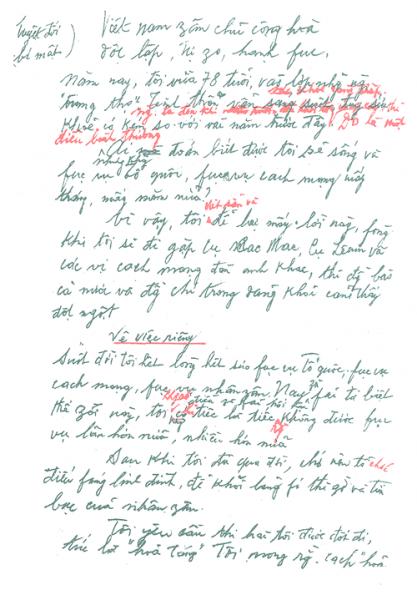 Tuyệt đối
bí mật)
Việt nam zân chủ cộng hoà
độc lập, tự zo, hạnh fúc.
Năm nay, tôi vừa 78 tuổi, vào lớp những người
"trung thọ". Tinh thần vẫn sáng suốt,
khoẻ có kém so với vài năm trước đây. Đó là một
điều bình thường.
Ai mà đoán biết được tôi sẽ sống và
fục vụ tổ quốc, fục vụ cách mạng mấy
tháng, mấy năm nữa?
viết sẵn và
Vì vậy, tôi để lại mấy lời này, fòng
khi tôi sẽ đi gặp cụ Các Mác, Cụ Lênin và
các vị cách mạng đàn anh khác, thì đ/b
cả nước và đ/c trong đảng khỏi cảm thấy
đột ngột.
Về việc riêng
Suốt đời tôi hết lòng hết sức fục vụ Tổ quốc, fục vụ
cách mạng, fục vụ nhân zân. Nay zù fải từ biệt
thế zới này, tôi tiếc là tiếc không được fục
vụ lâu hơn nữa, nhiều hơn nữa.
Sau khi tôi đã qua đời, chớ nên tổ chức
điếu fúng linh đình, để khỏi lãng fí thì zờ và tiền
bạc của nhân zân.
Tôi yêu cầu thi hài tôi được đốt đi,
tức là "hoả táng". Tôi mong rằng cách "hoả